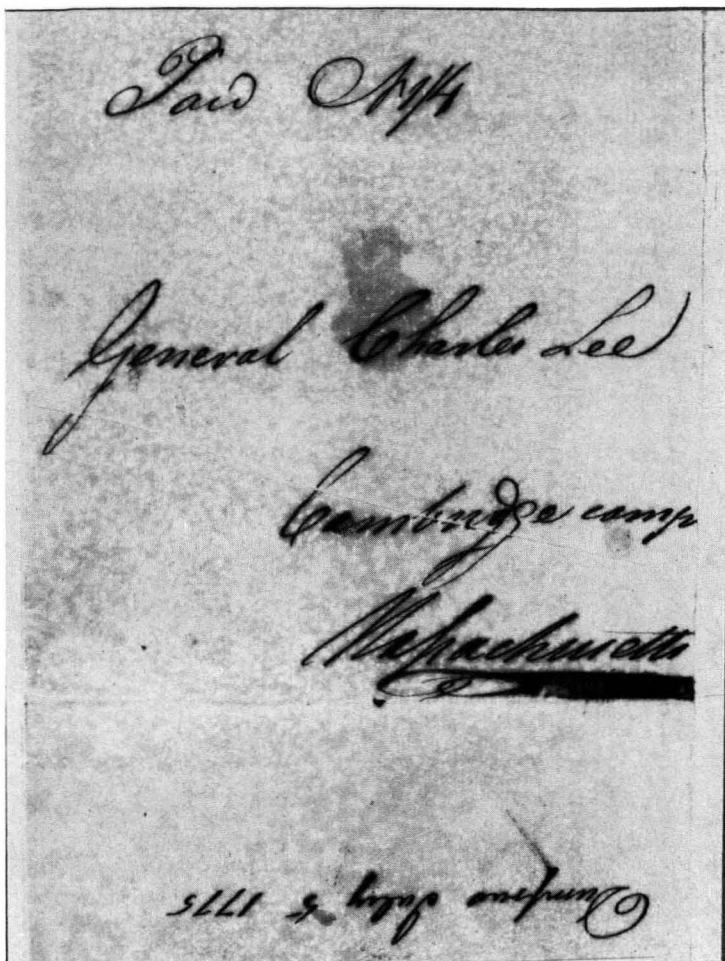 Paid
General Charles Lee
Cambridge camp
Massachusetts
Dumfries July 5 1775